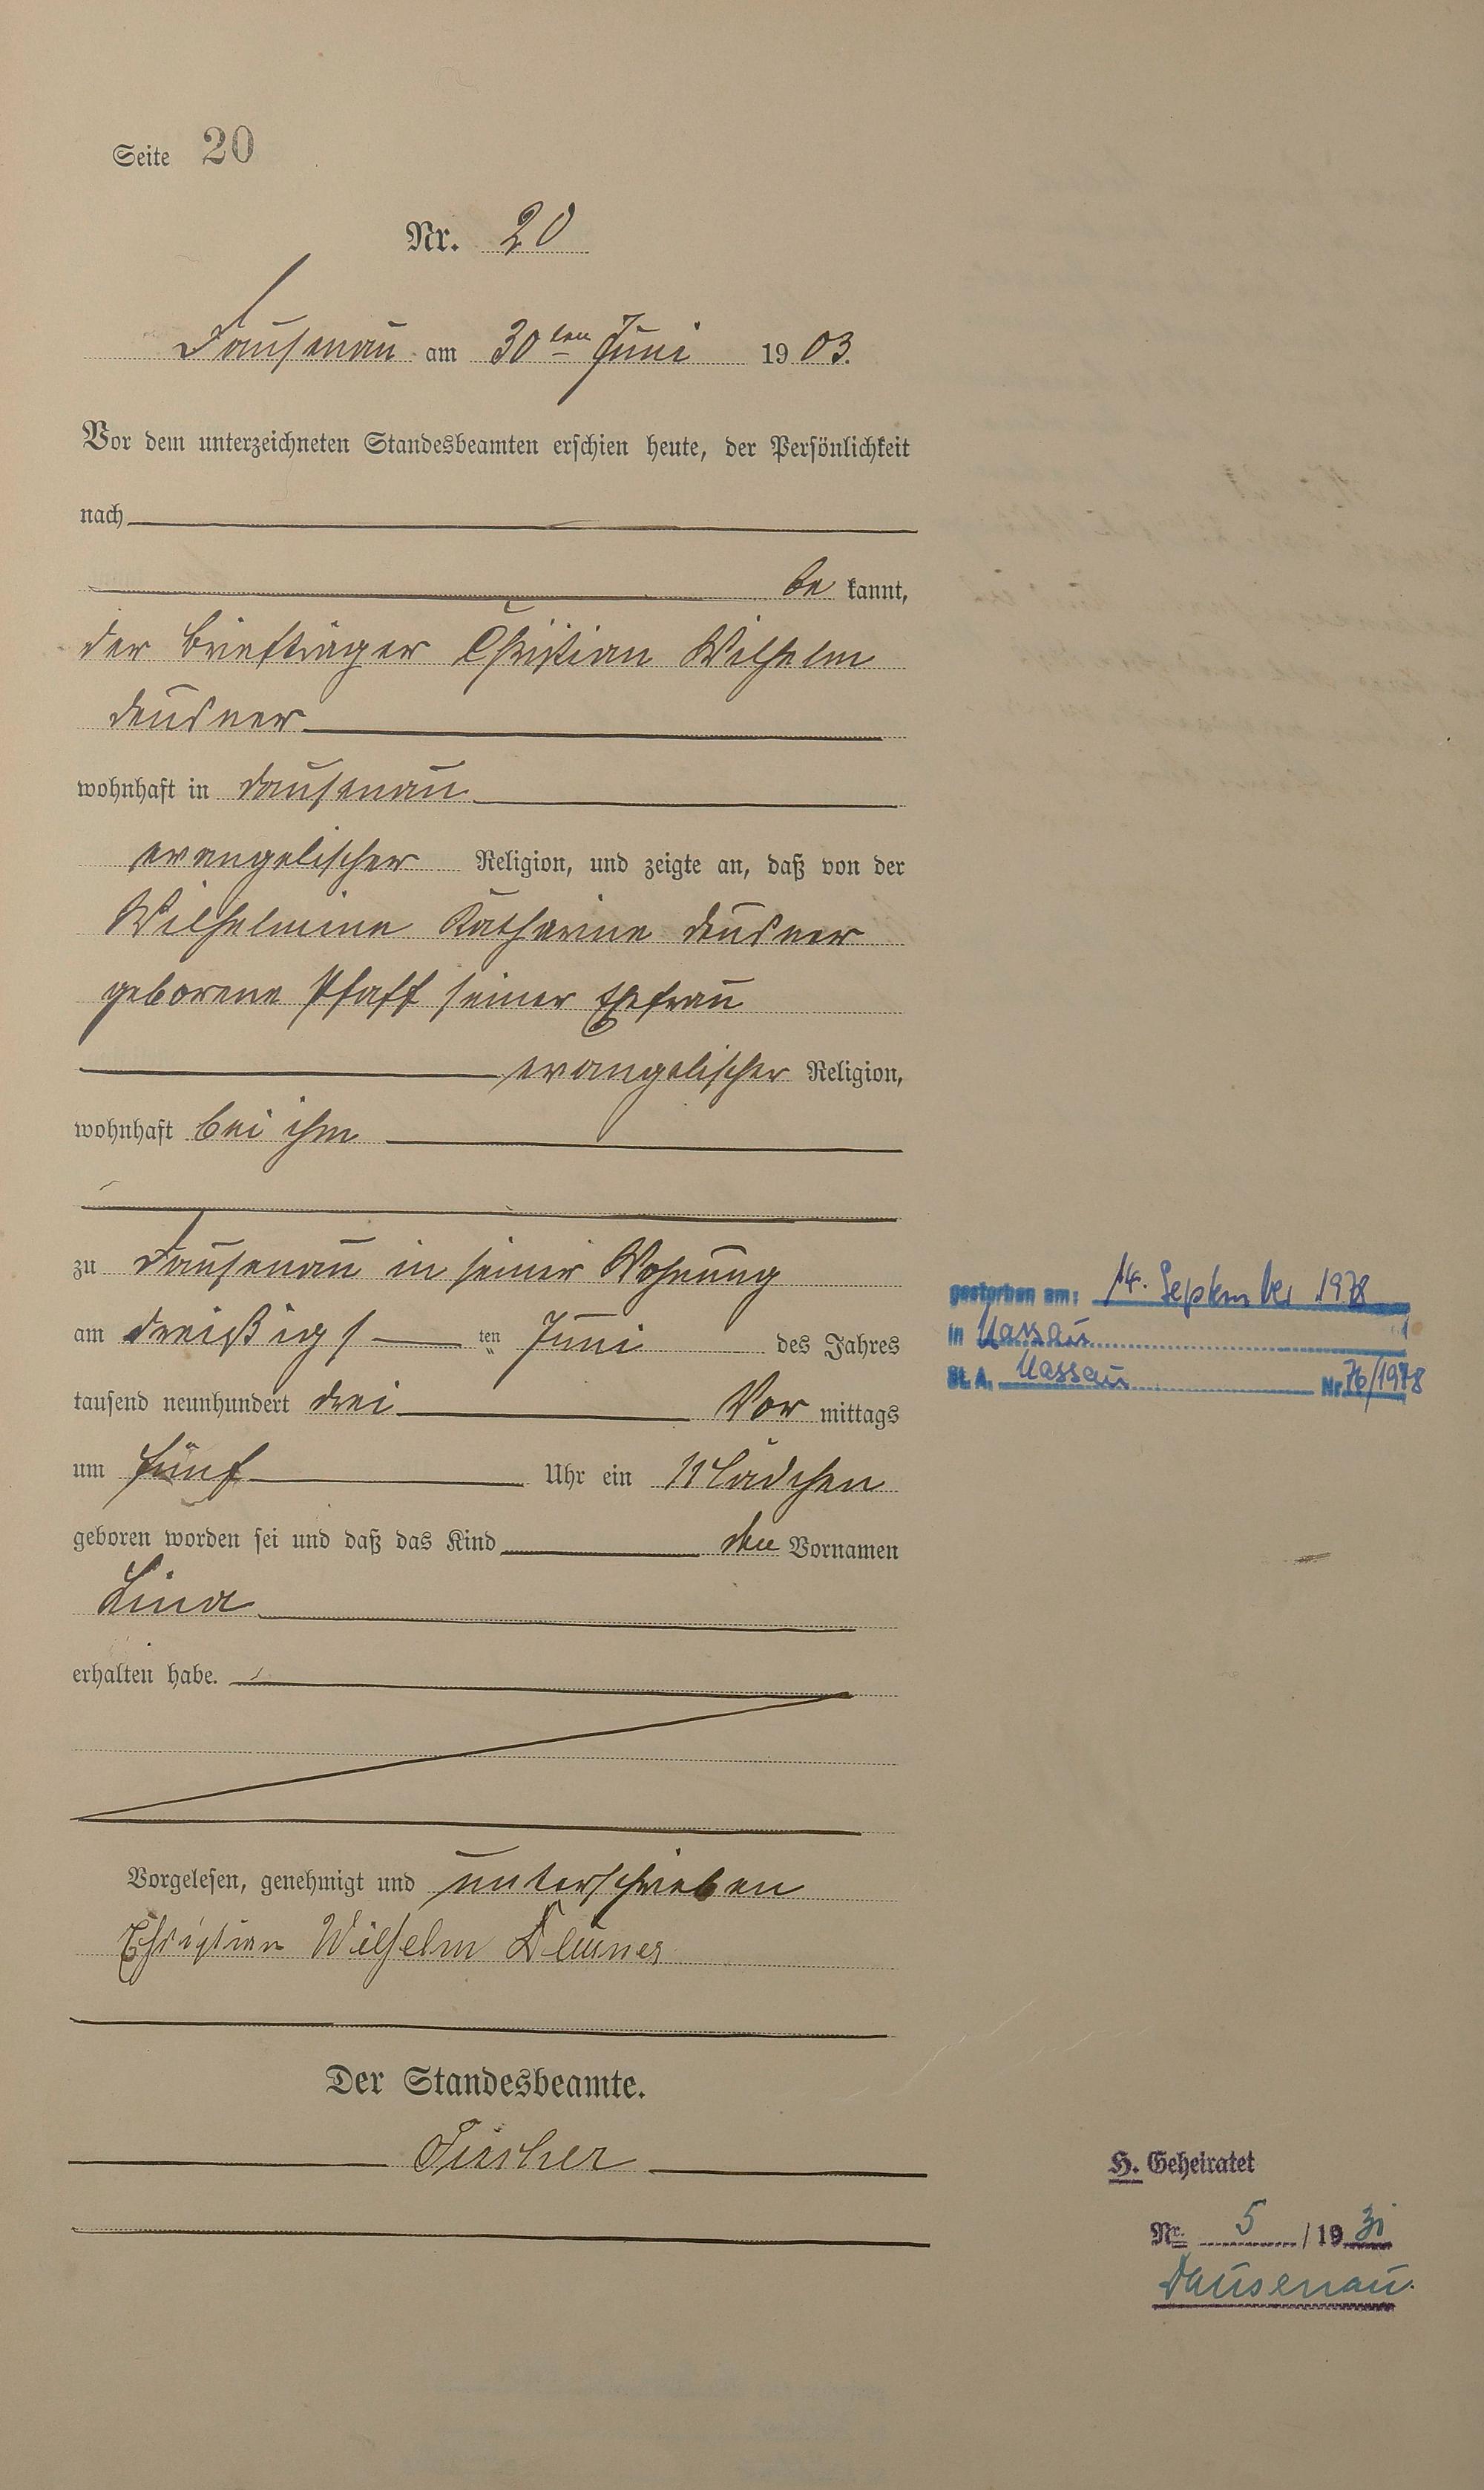 Seite 20
Nr. 20
Dausenau am 30ten Juni 1903.
Vor dem unterzeichneten Standesbeamten erschien heute, der Persönlichkeit
nach
be kannt,
der Briefträger Christian Wilhelm
Deusner
wohnhaft in Dausenau
evangelischer Religion, und zeigte an, daß von der
Wilhelmine Katharine Deusner
geborene Pfaff seiner Ehefrau
evangelischer Religion,
wohnhaft bei ihm
zu Dausenau in seiner Wohnung
am dreißigs ten Juni des Jahres
tausend neunhundert drei Vor mittags
um fünf Uhr ein Mädchen
geboren worden sei und daß das Kind den Vornamen
Lina
erhalten habe.
Vorgelesen, genehmigt und unterschrieben
Christian Wilhelm
Der Standesbeamte.
gestorben am: 14. September 1978
in Nassau
St. A. Nassau Nr. 76/1978
H. Geheiratet
Nr. 5 / 19 31
Dausenau.